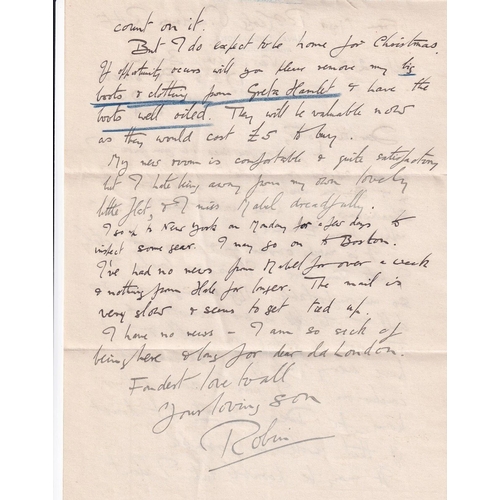 count on it.
But I do expect to be home for Christmas.
If opportunity occurs will you please remove my big
boots & clothing from Greta Hamlet & have the
boots well oiled. They will be valuable now
as they would cost £5 to buy.
My new room is comfortable & quite satisfactory
but I hate being away from my own lovely
little flat, & I miss Mabel dreadfully.
I go to New York on Monday for a few days to
inspect some gear. I may go on to Boston.
I've had no news from Mabel for over a week
& nothing from Hale for longer. The mail is
very slow & seems to get tied up.
I have no news – I am so sick of
being here & long for dear old London.
Fondest love to all
Your loving son
Robin